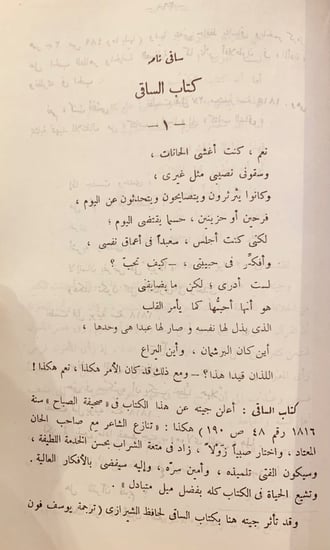 ساقى نامه
كتاب الساقى
— ١ —
نعم ، كنت أغشى الحانات ،
وسقونى نصيبى مثل غيرى ،
وكانوا يثرثرون ويتصايحون ويتحدثون عن اليوم ،
فرحين أو حزينين ، حسبما يقتضى اليوم ؛
لكنى كنت أجلس ، سعيداً فى أعماق نفسى ،
وأفكّر فى حبيبتى ، — كيف تحبّ ؟
لست أدرى ؛ لكن ما يضايقنى
هو أنها أحبُّها كما يأمر القلب
الذى بذل لها نفسه وصار لها عبدا هى وحدها ،
أين كان البرشمان ، وأين اليراع
اللذان قيدا هذا ؟ — ومع ذلك قد كان الأمر هكذا ، نعم هكذا !
كتاب الساقى : أعلن جيته عن هذا الكتاب فى « صحيفة الصباح » سنة
١٨١٦ رقم ٤٨ ص ١٩٠ ) هكذا : « تنازع الشاعر مع صاحب الحان
المعتاد ، واختار صبياً زَوْلاً ، زاد فى متعة الشراب بحسن الخدمة اللطيفة ،
وسيكون الفتى تلميذه ، وأمين سرّه ، وإليه سيفضى بالأفكار العالية .
وتشيع الحياة فى الكتاب كله بفضل ميل متبادل » .
وقد تأثر جيته هنا بكتاب الساقى لحافظ الشيرازى ( ترجمة يوسف فون